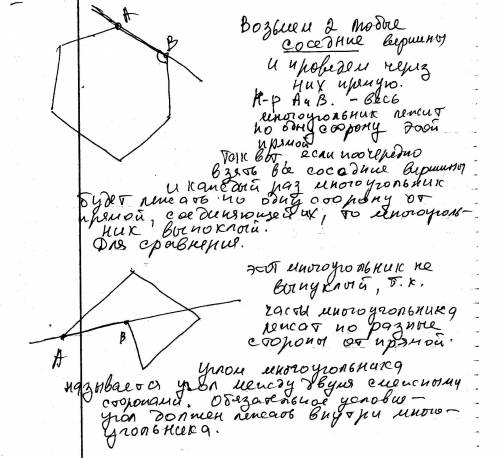 A
B
Возьмем 2 любые
соседние вершины
и проведем через
них прямую.
Н-р А и В. - весь
многоугольник лежит
по одну сторону этой
прямой
Так вот если поочередно
взять все соседние вершины
и каждый раз многоугольник
будет лежать по одну сторону от
прямой, соединяющей их, то многоуголь-
ник выпуклый.
Для сравнения.
этот многоугольник не
выпуклый, т.к.
части многоугольника
лежат по разные
стороны от прямой.
A
B
Углом многоугольника
называется угол между двумя смежными
сторонами. Обязательное условие -
угол должен лежать внутри много-
угольника.